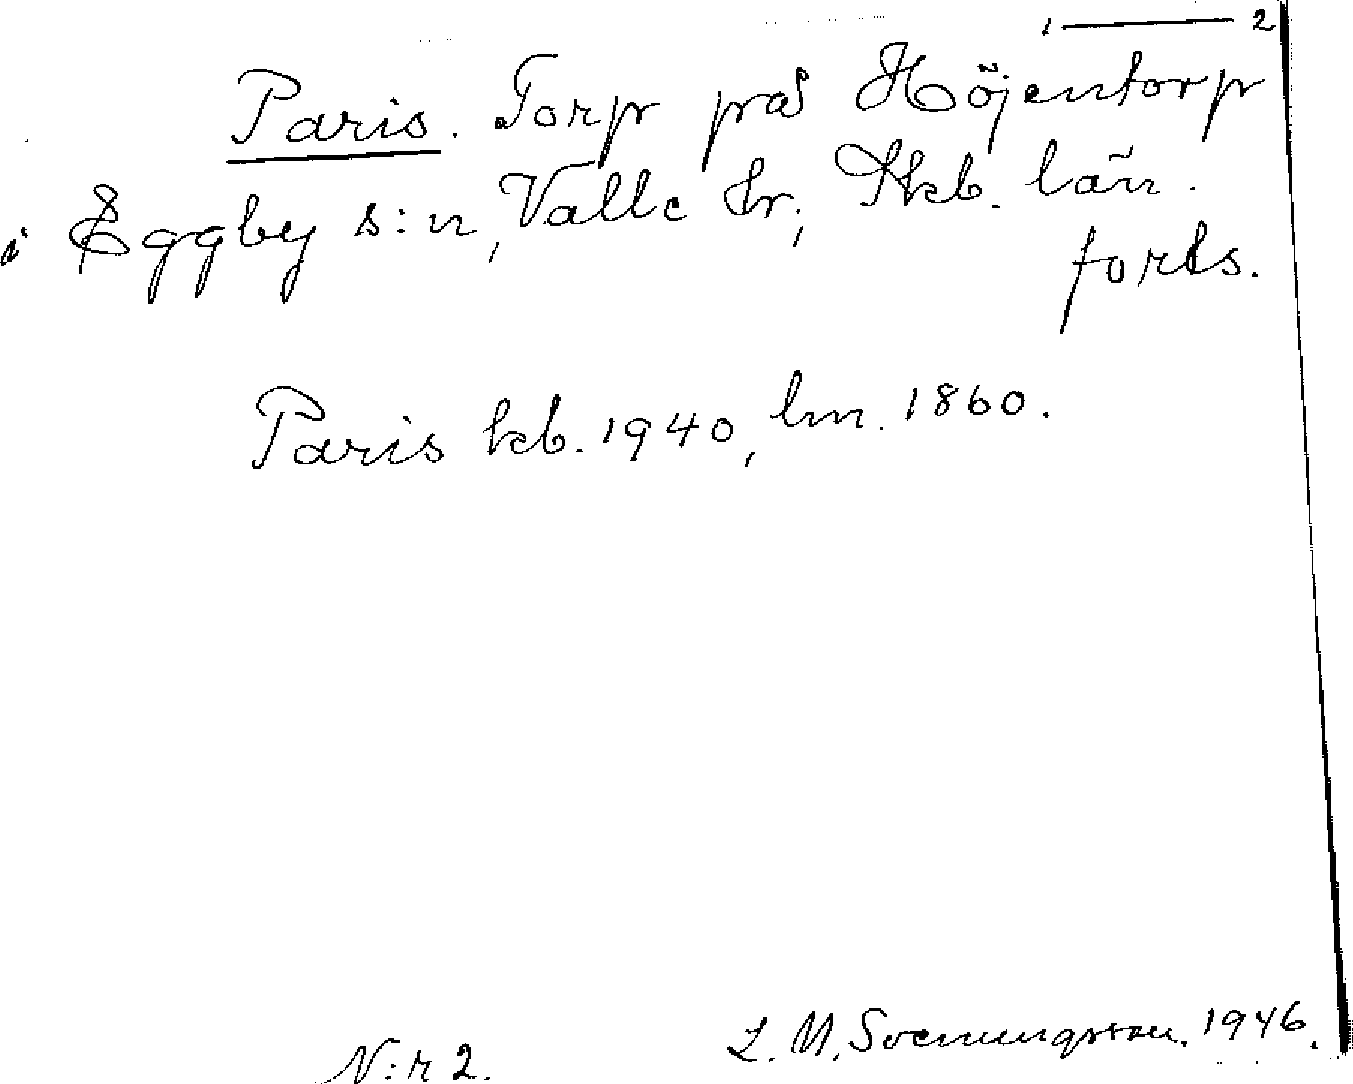 1 — 2
Paris. Torp på Höjentorp
i Eggby s:n, Valle hr; Skb. län.
forts.
Paris kb. 1940, lm. 1860.
N:r 2.
L. M. Svenungsson. 1946.